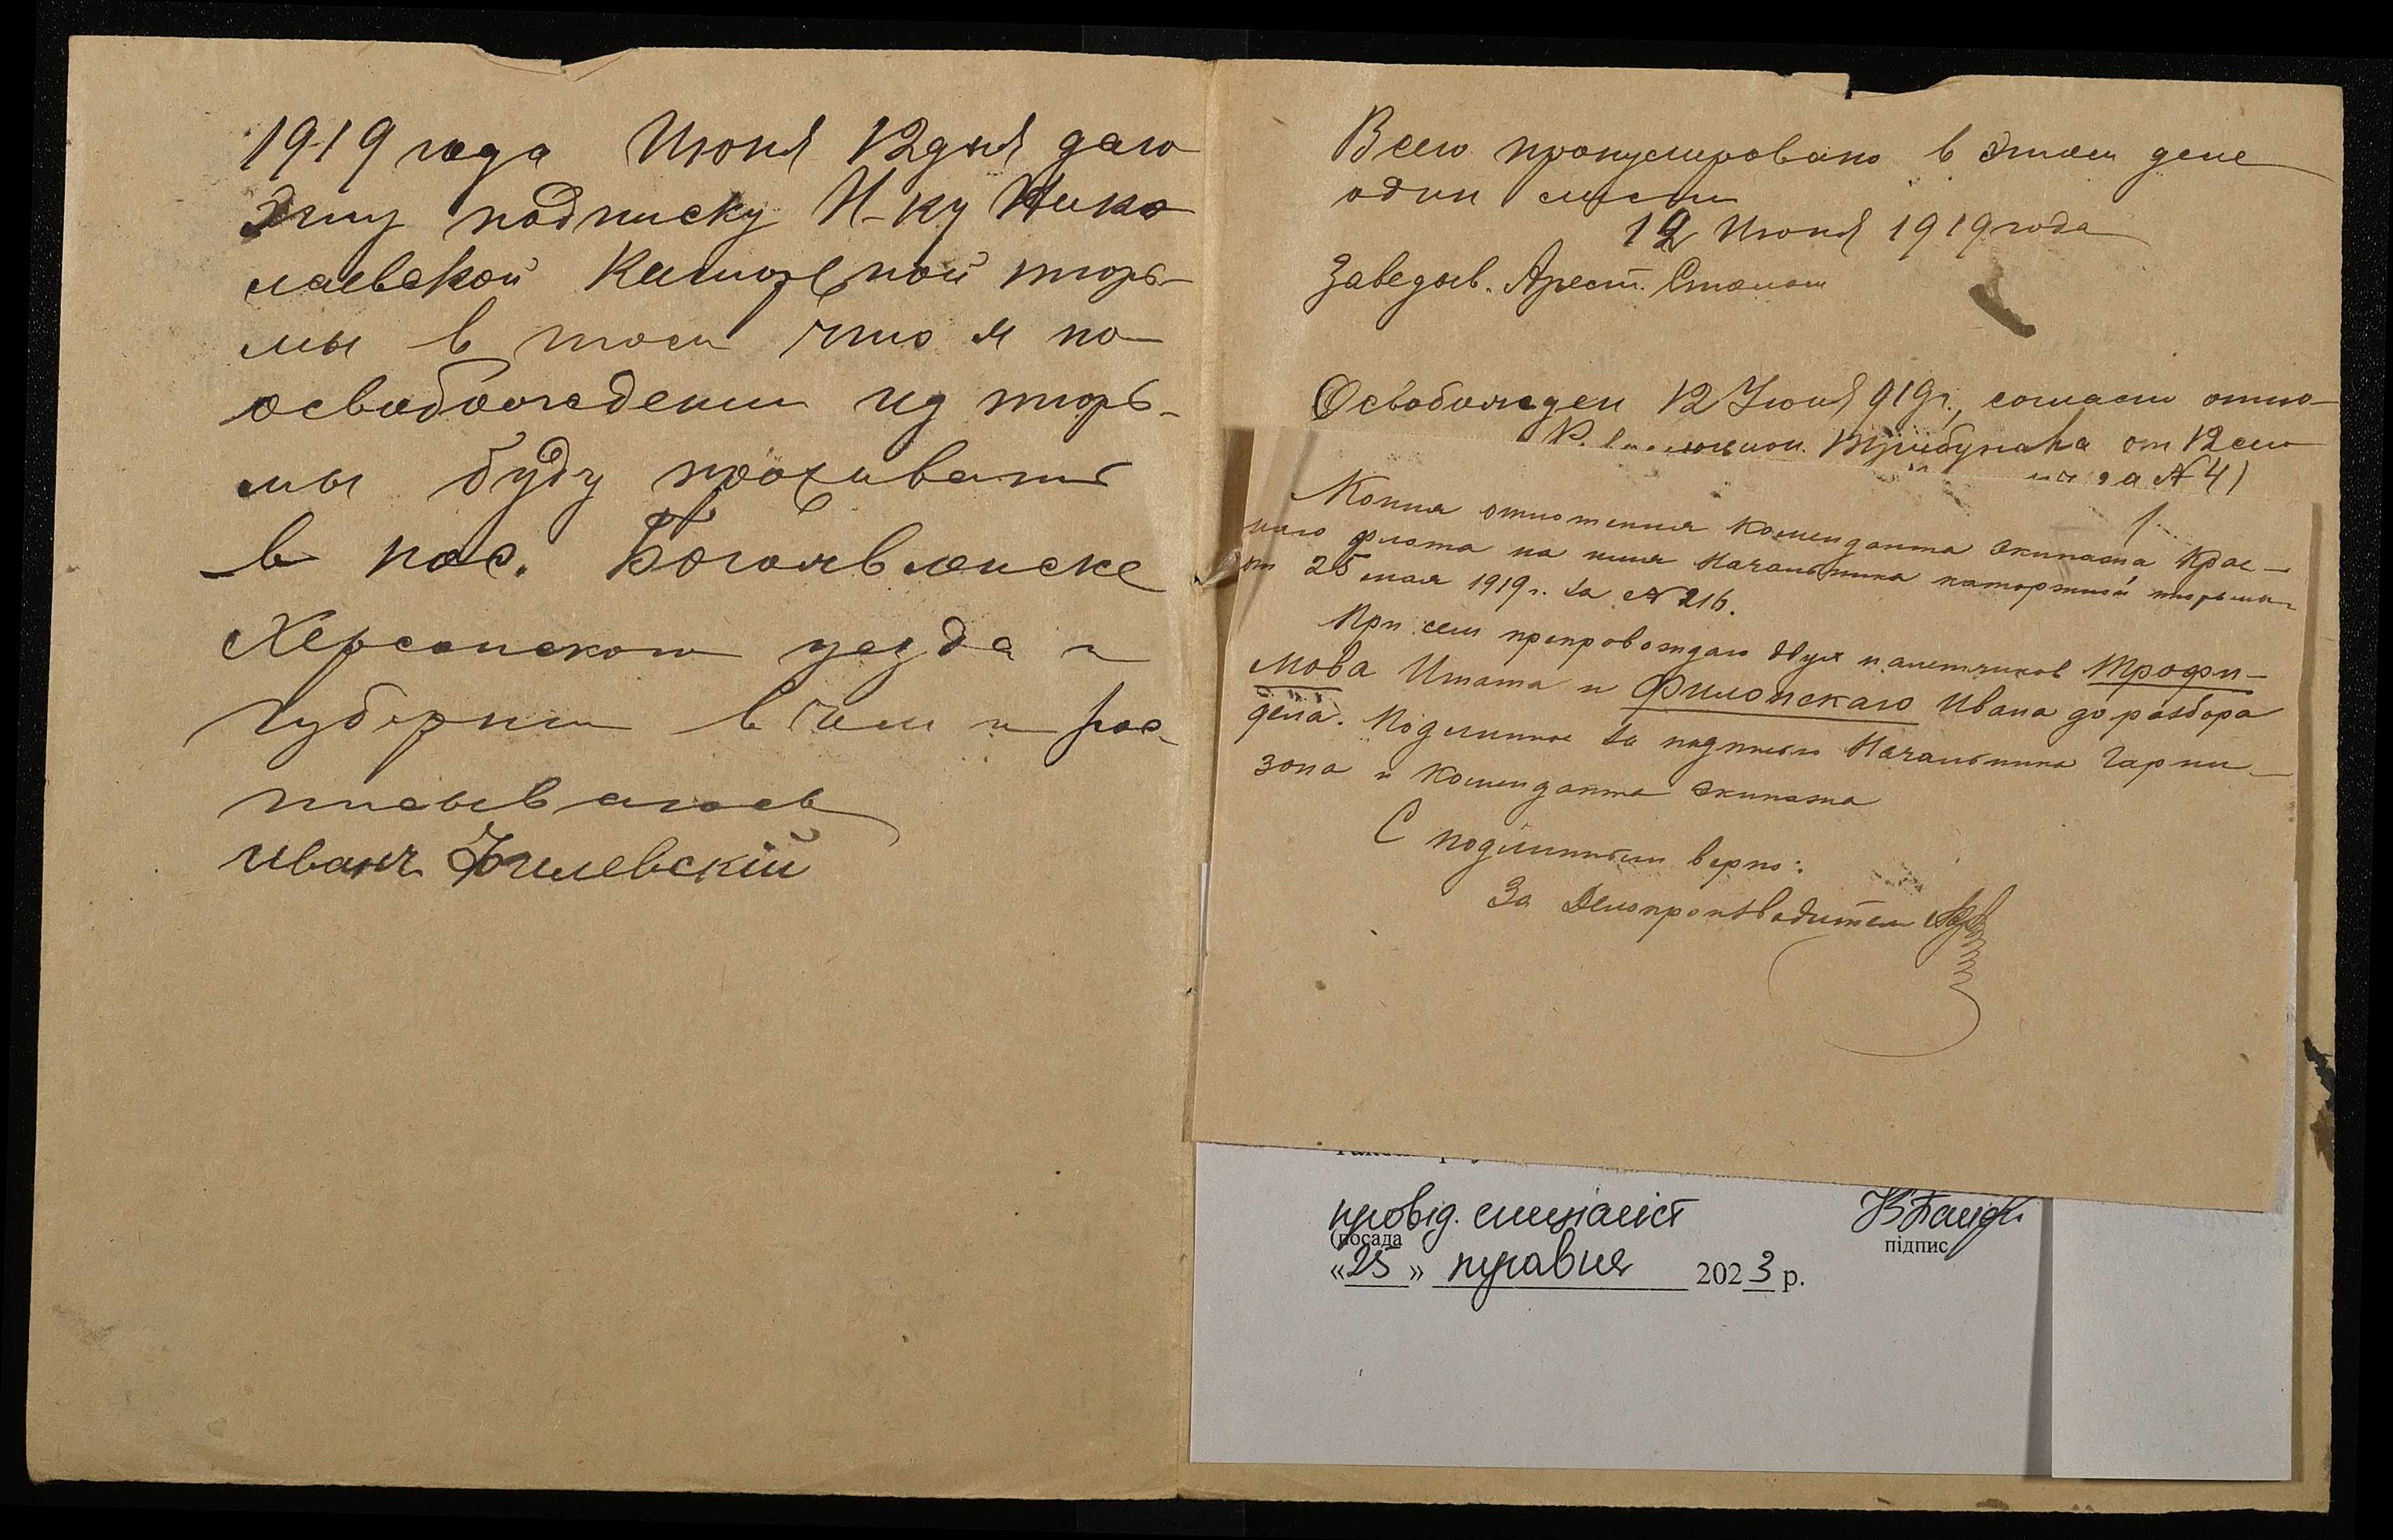 1919 года Июня 12 дня даю
эту подписку Н-ку Нико
лаевской Каторжной тюрь-
мы в том что я по
освобождении из тюрь-
мы буду проживать
в пос. Богоявленске
Херсонского уезда и
губернии в чем и рас-
писываюсь
Иванъ Филевскій
Всего пронумеровано в этом деле
один лист
12 Июня 1919 года
Заведыв. Арест. Столом
Освобожден 12 Июня 919 г., согласно отно-
Трибунала от 12 сего
за №41
1.
Копия отношения Коменданта экипажа Крас-
наго флота на имя Начальника каторжной тюрьмы
от 25 мая 1919 г. за №216.
При сем препровождаю двух налетчиков Трофи-
мова Игната и Филонскаго Ивана до разбора
дела. Подлинное за подписью Начальника Гарни-
зона и Коменданта экипажа
С подлинным верно:
За Делопроизводителя
провід. спеціаліст
(посада
підпис
«25» травня 2023 р.